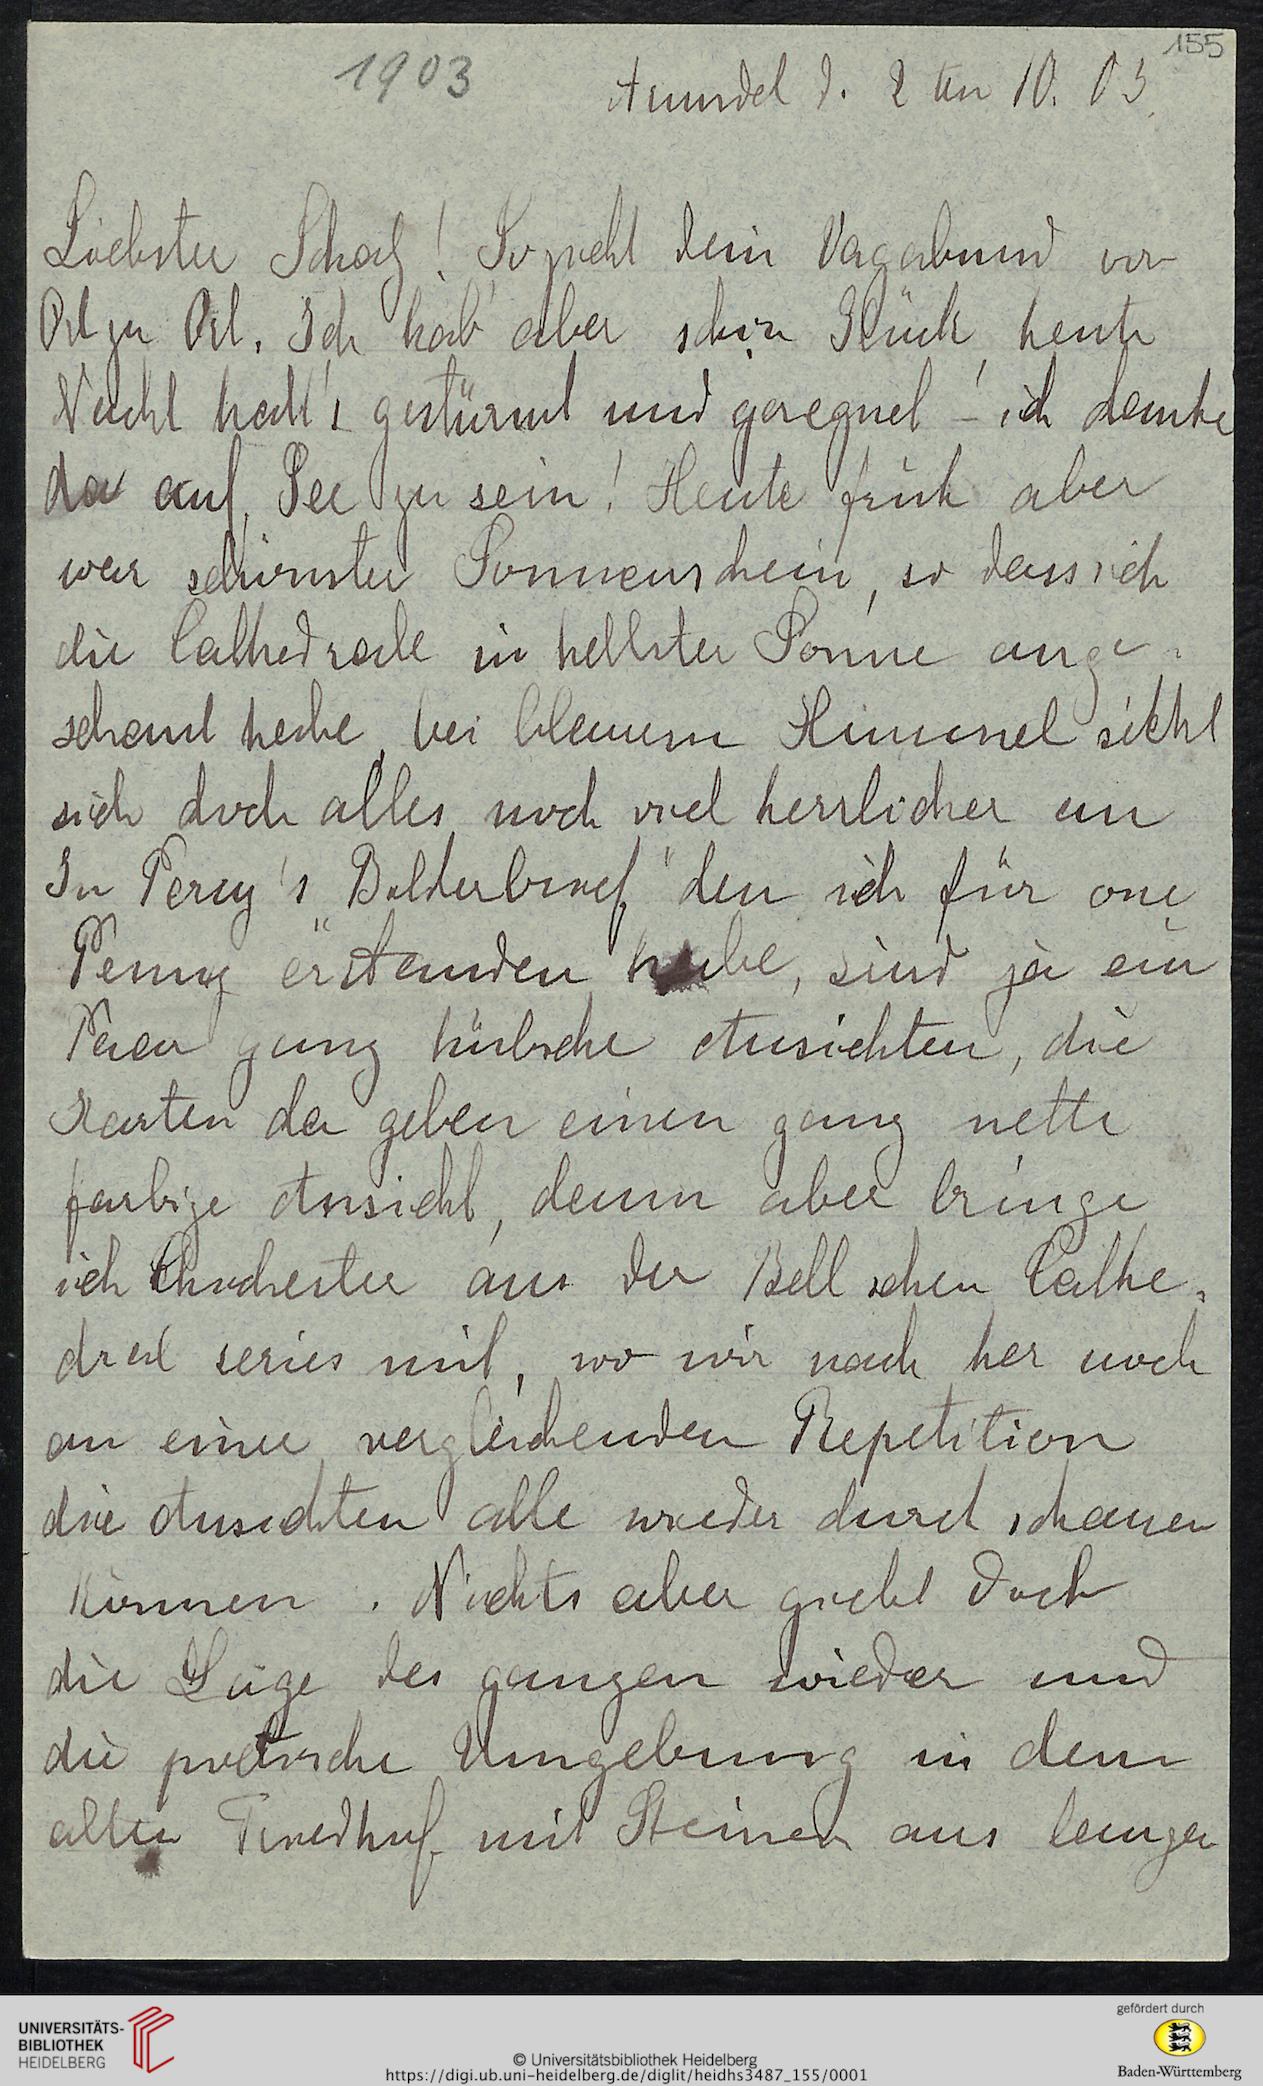 155
1903
Arundel d. 2 ten 10. 03.
Liebster Schatz! So zieht dein Vagabund von
Ort zu Ort. Ich hab' aber schon Glück, heute
Nacht hatt's gestürmt und geregnet – ich danke
da auf See zu sein! Heute früh aber
war schönster Sonnenschein, so dass ich
die Cathedrale in hellster Sonne ange-
schaut habe, bei blauem Himmel sieht
sich doch alles noch viel herrlicher an
In Percy's Bilderbrief, den ich für one
Penny erstanden habe, sind ja ein
Paar ganz hübsche Ansichten, die
Karten da geben einen ganz nette
farbige Ansicht, dann aber bringe
ich Chichester aus der Bell schen Cathe-
dral series mit, wo wir nach her noch
an einer vergleichenden Repetition
die Ansichten alle wieder durch schauen
können. Nichts aber giebt doch
die Lage des ganzen wieder und
die poetische Umgebung in dem
alten Friedhof mit Steinen aus langer
UNIVERSITÄTS-
BIBLIOTHEK
HEIDELBERG
© Universitätsbibliothek Heidelberg
https://digi.ub.uni-heidelberg.de/diglit/heidhs3487_155/0001
gefördert durch
Baden-Württemberg